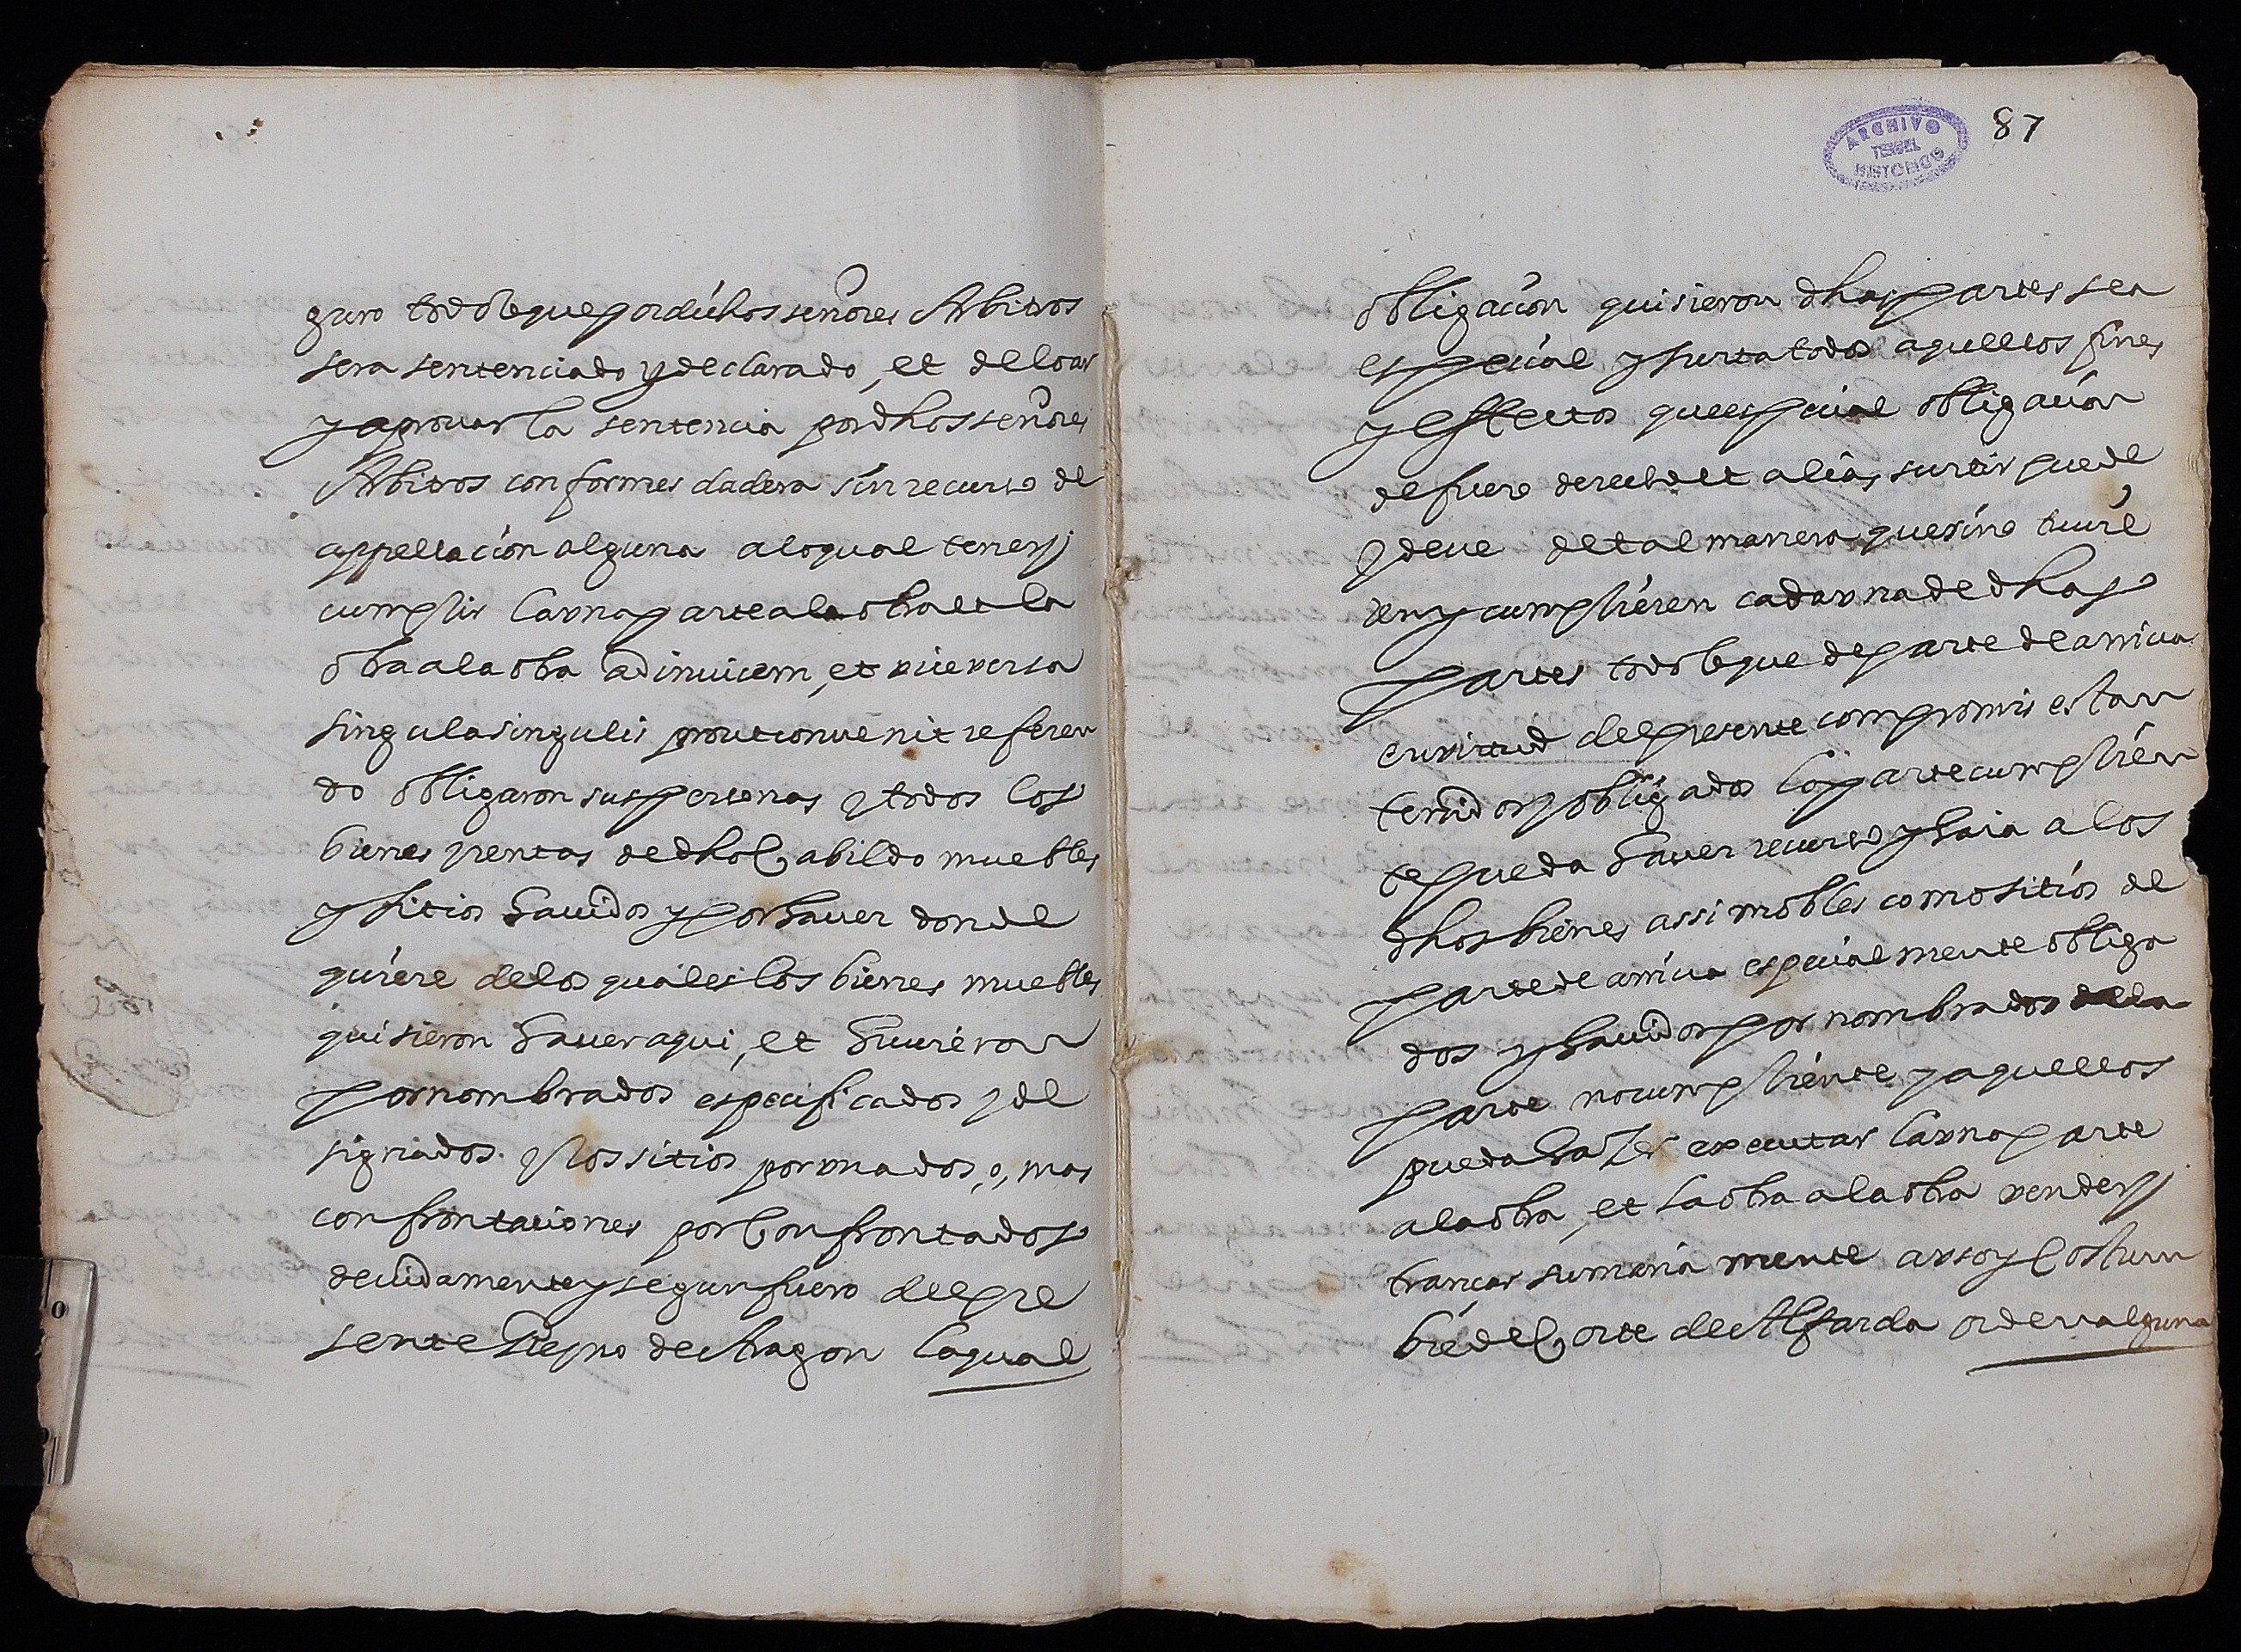 guro todo lo que por dichos señores Arbitros
sera sentenciado y declarado, et de loar
y aprouar la sentencia por dhos señores
Arbitros conformes dadera sin recurso de
appellacion alguna a lo qual tener y
cumplir la vna parte a la otra et la
otra a la otra ad inuicem, et vice versa
singula singulis prout conuenit referen
do obligaron sus personas y todos los
bienes y rentas de dho Cabildo muebles
y sitios hauidos y por hauer donde
quiere de los quales los bienes muebles
quisieron hauer aqui, et huuieron
por nombrados especificados y de
signados. Y los sitios por vna dos, o, mas
confrontaciones por Confrontados
deuidamente y segun fuero del pre
sente Reyno de Aragon la qual
ARCHIVO
TERUEL
HISTORICO
87
obligacion quisieron dhas partes sea
especial y surta todos aquellos fines
y effectos que especial obligacion
de fuero derecho et alias surtir puede
y deue de tal manera que si no tuuie
ren y cumplieren cada vna de dhas
partes todo lo que de parte de arriua
en virtud del presente compromis estan
tenidos y obligados la parte cumplien
te pueda hauer recurso y haia a los
dhos bienes assi mobles como sitios de
parte de arriua especialmente obliga
dos y hauidos por nombrados de la
parte no cumpliente y aquellos
pueda hazer executar la vna parte
a la otra, et la otra a la otra vender y
trançar sumariamente a vso y Costum
bre de Corte de Alfarda orden alguna